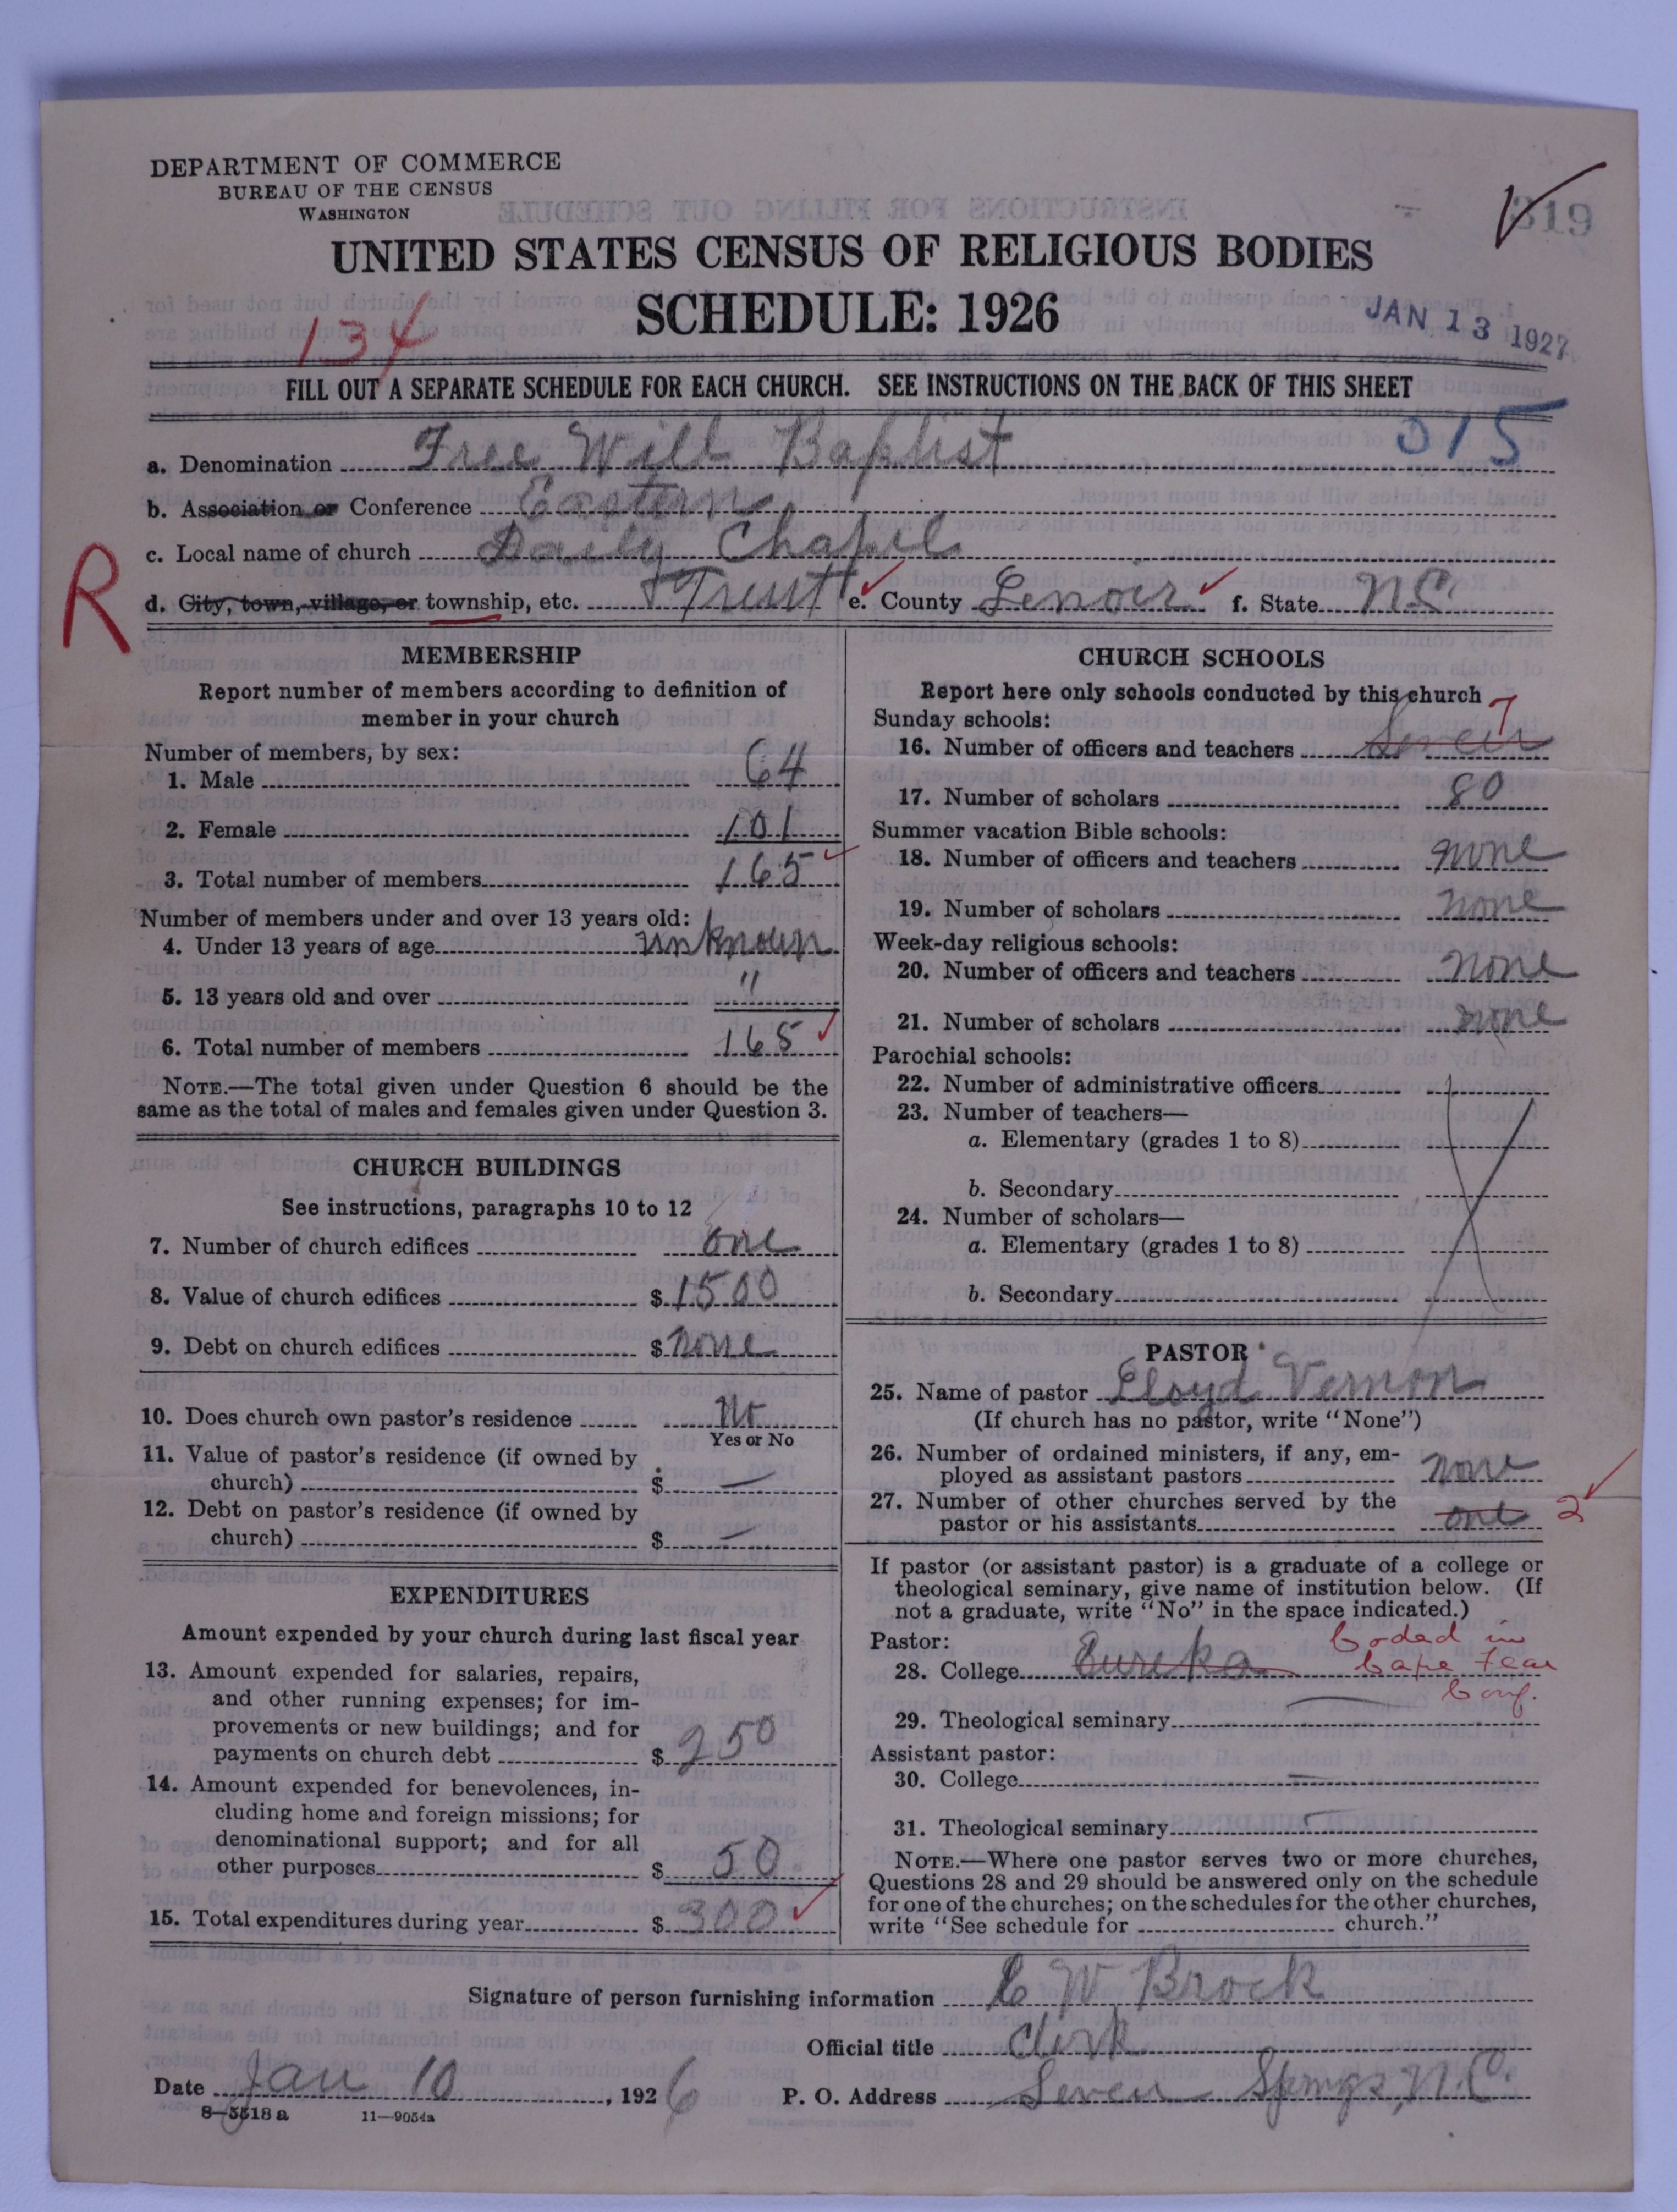 DEPARTMENT OF COMMERCE
BUREAU OF THE CENSUS
WASHINGTON
319
UNITED STATES CENSUS OF RELIGIOUS BODIES
SCHEDULE: 1926
134
JAN 13 1927
FILL OUT A SEPARATE SCHEDULE FOR EACH CHURCH. SEE INSTRUCTIONS ON THE BACK OF THIS SHEET
015
a. Denomination Free Will Baptist
b. Association or Conference Eastern
c. Local name of church Daily Chapel
R
d. City, town, village, or township, etc. Trent e. County Lenoir f. State NC
MEMBERSHIP
Report number of members according to definition of
member in your church
Number of members, by sex:
1. Male 64
2. Female 101
3. Total number of members 165
Number of members under and over 13 years old:
4. Under 13 years of age unknown
5. 13 years old and over "
6. Total number of members 165
NOTE.—The total given under Question 6 should be the
same as the total of males and females given under Question 3.
CHURCH BUILDINGS
See instructions, paragraphs 10 to 12
7. Number of church edifices one
8. Value of church edifices $1500
9. Debt on church edifices $none
10. Does church own pastor's residence No
Yes or No
11. Value of pastor's residence (if owned by
church) $ —
12. Debt on pastor's residence (if owned by
church) $ —
EXPENDITURES
Amount expended by your church during last fiscal year
13. Amount expended for salaries, repairs,
and other running expenses; for im-
provements or new buildings; and for
payments on church debt $ 250
14. Amount expended for benevolences, in-
cluding home and foreign missions; for
denominational support; and for all
other purposes $ 50
15. Total expenditures during year $ 300
CHURCH SCHOOLS
Report here only schools conducted by this church
Sunday schools: 7
16. Number of officers and teachers Seven
17. Number of scholars 80
Summer vacation Bible schools:
18. Number of officers and teachers none
19. Number of scholars none
Week-day religious schools:
20. Number of officers and teachers none
21. Number of scholars none
Parochial schools:
22. Number of administrative officers
23. Number of teachers—
a. Elementary (grades 1 to 8)
b. Secondary
24. Number of scholars—
a. Elementary (grades 1 to 8)
b. Secondary
PASTOR
25. Name of pastor Lloyd Vernon
(If church has no pastor, write "None")
26. Number of ordained ministers, if any, em-
ployed as assistant pastors none
27. Number of other churches served by the
pastor or his assistants one 2
If pastor (or assistant pastor) is a graduate of a college or
theological seminary, give name of institution below. (If
not a graduate, write "No" in the space indicated.)
Pastor: Coded in
28. College Eureka Cape Fear
Conf.
29. Theological seminary —
Assistant pastor:
30. College —
31. Theological seminary —
NOTE.—Where one pastor serves two or more churches,
Questions 28 and 29 should be answered only on the schedule
for one of the churches; on the schedules for the other churches,
write "See schedule for church."
Signature of person furnishing information C W Brock
Official title Clerk
Date Jan 10, 1926 P. O. Address Seven Springs, N.C.
8-5518a 11—9054a